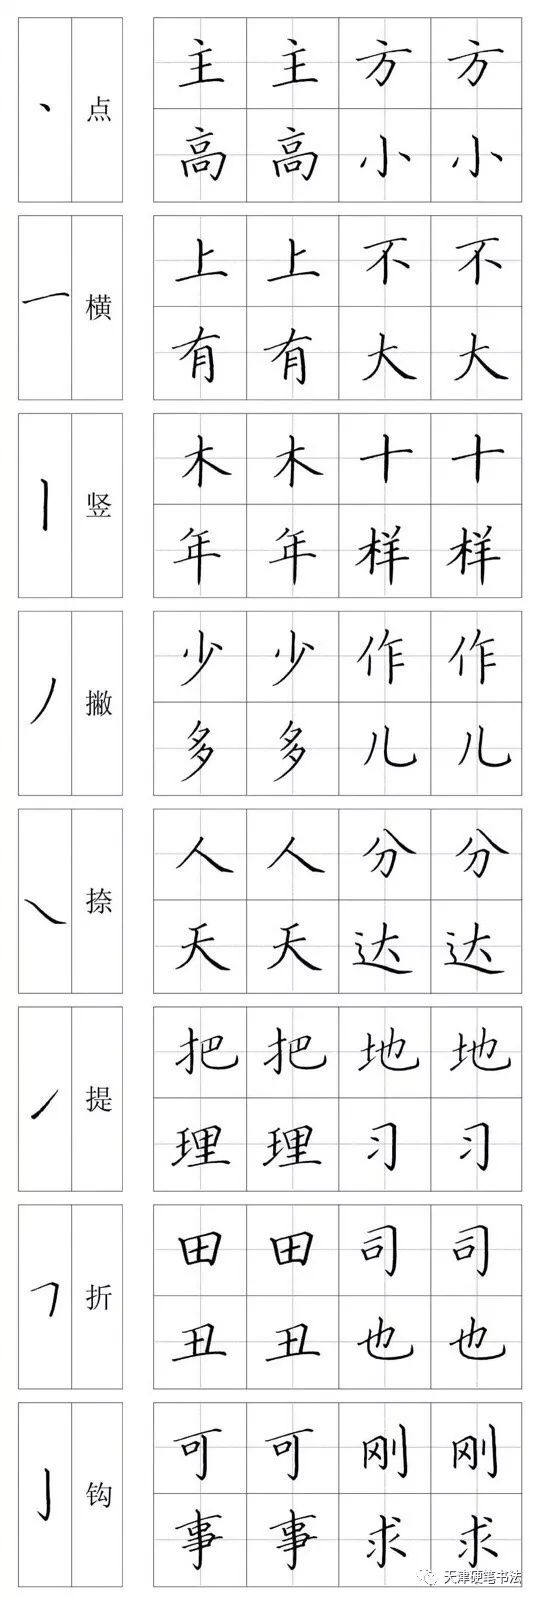 丶 点
主 主 方 方
高 高 小 小
一 横
上 上 不 不
有 有 大 大
丨 竖
木 木 十 十
年 年 样 样
丿 撇
少 少 作 作
多 多 儿 儿
㇏ 捺
人 人 分 分
天 天 达 达
㇀ 提
把 把 地 地
理 理 习 习
㇕ 折
田 田 司 司
丑 丑 也 也
亅 钩
可 可 刚 刚
事 事 求 求
天津硬笔书法